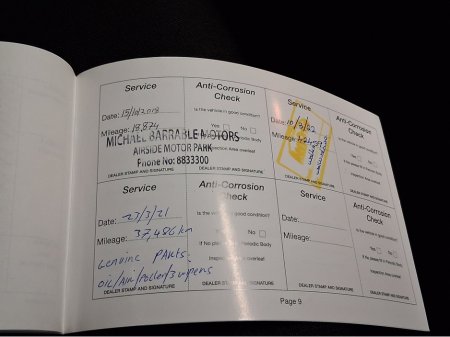 Service
Date: 15/10/2018
Mileage: 18,874
MICHAEL BARRABLE MOTORS
AIRSIDE MOTOR PARK
Phone No: 8833300
DEALER STAMP AND SIGNATURE
Anti-Corrosion
Check
Is the vehicle in good condition?
Yes No
Periodic Body
Inspection Area overleaf
Service
Date:
Mileage:
DEALER STAMP AND SIGNATURE
Anti-Corrosion
Check
Is the vehicle in good condition?
Yes No
If No please
Periodic Body
Inspection Area overleaf
Service
Date: 23/3/21
Mileage: 37,486 km
Genuine Parts.
oil/Air/Pollen/3 wipers
DEALER STAMP AND SIGNATURE
Anti-Corrosion
Check
Is the vehicle in good condition?
Yes No
If No please
Periodic Body
Inspection Area overleaf
Service
Date:
Mileage:
DEALER STAMP AND SIGNATURE
Anti-Corrosion
Check
Is the vehicle in good condition?
Yes No
If No please
Periodic Body
Inspection Area overleaf
Page 9